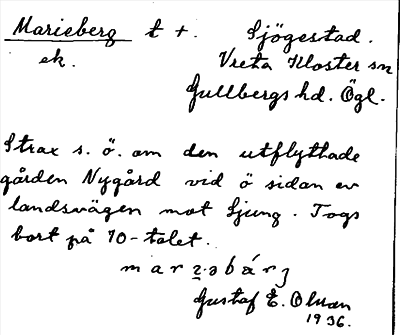 Marieberg t +. Sjögestad.
ek. Vreta Kloster sn
Gullbergs hd. Ögl.
Strax s. ö. om den utflyttade
gården Nygård vid ö sidan av
landsvägen mot Ljung. Togs
bort på 70-talet.
Gustaf E. Olsson
1936.